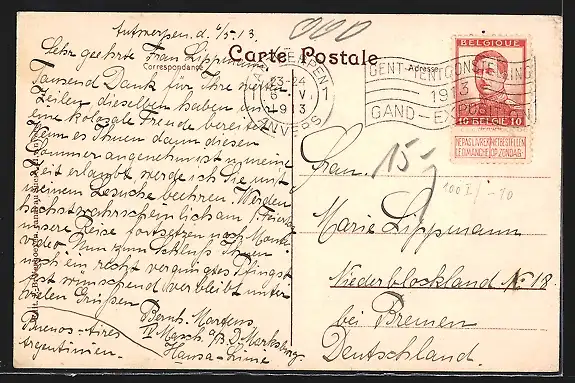 Antwerpen. d. 6/5. 13.
Sehr geehrte Frau Lippmann
Tausend Dank für Ihre netten
Zeilen dieselben haben mir
eine kolosale Freude bereitet
Wenn es Ihnen dann diesen
Sommer angenehm ist u. meine
Zeit erlaubt werde ich Sie mit
meinem Besuche beehren. Werden
höchstwahrscheinlich am I Feiertag
unsere Reise fortsetzen nach Monte-
video. Nun zum Schluß Ihnen
noch ein recht vergnügtes Pfingst-
fest wünschend verbleibt unter
vielen Grüßen
Bernh. Martens
IV Masch. a/B D. Marksburg
Hansa-Linie
Buenos-Aires
Argentinien.
Carte Postale
Correspondance
Adresse
ANTWERPEN
23-24
6 V
1913
ANVERS
GENT-TENTOONSTELLING
1913
GAND-EXPOSITION
BELGIQUE
10 BELGIË 10
NE PAS LIVRER NIET BESTELLEN
LE DIMANCHE OP ZONDAG
15,-
Frau.
Marie Lippmann
Niederblockland No 18.
bei Bremen
Deutschland.